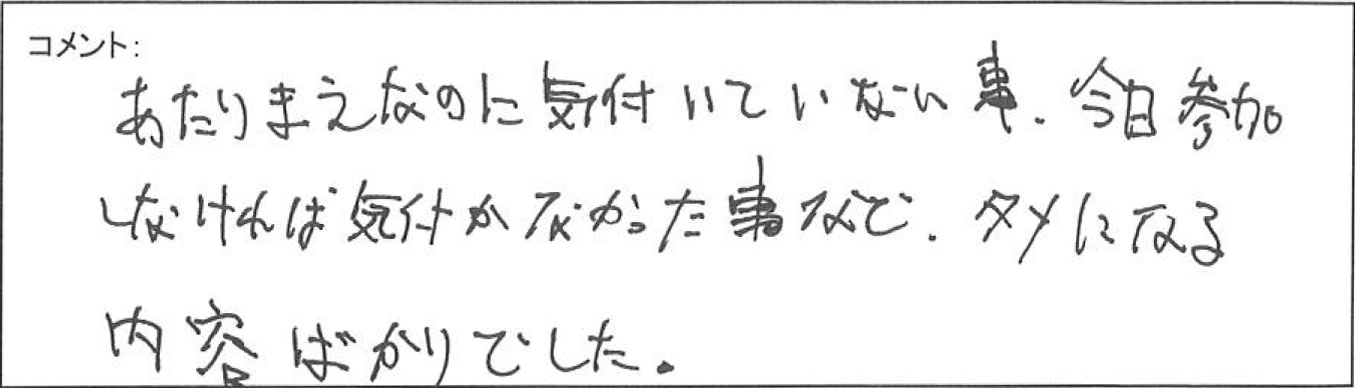 コメント:
あたりまえなのに気付いていない事、今日参加
しなければ気付かなかった事など、タメになる
内容ばかりでした。